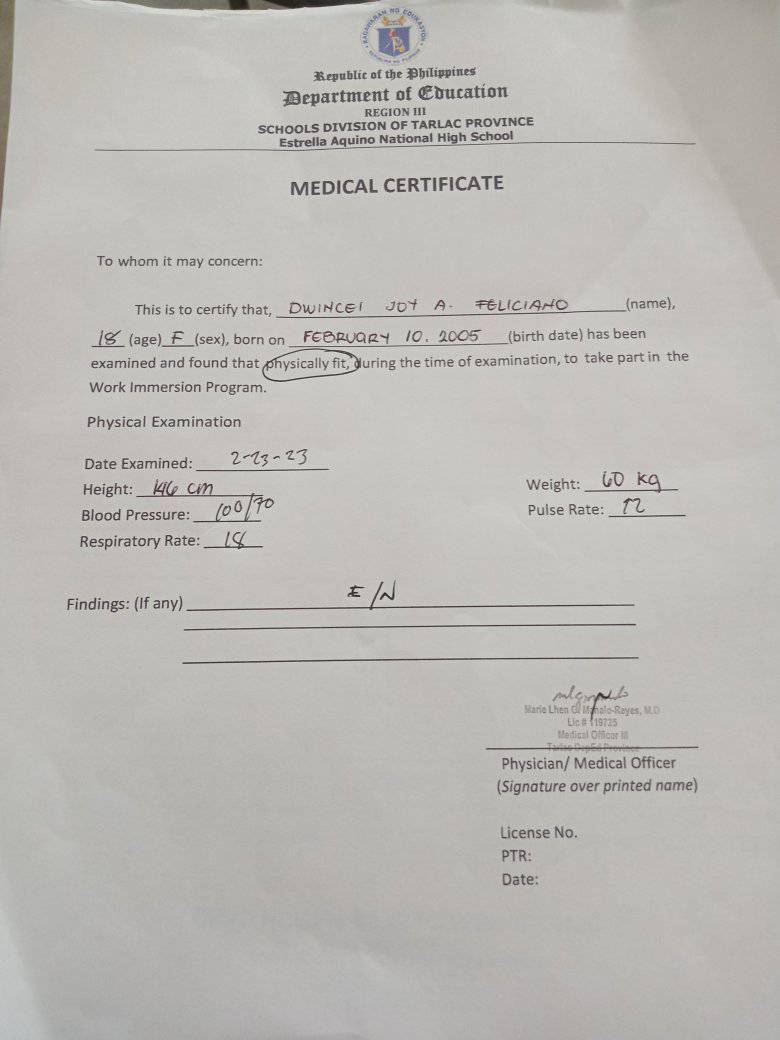 KAGAWARAN NG EDUKASYON
REPUBLIKA NG PILIPINAS
Republic of the Philippines
Department of Education
REGION III
SCHOOLS DIVISION OF TARLAC PROVINCE
Estrella Aquino National High School
MEDICAL CERTIFICATE
To whom it may concern:
This is to certify that, DWINCEI JOY A. FELICIANO (name),
18 (age) F (sex), born on FEBRUARY 10. 2005 (birth date) has been
examined and found that physically fit, during the time of examination, to take part in the
Work Immersion Program.
Physical Examination
Date Examined: 2-23-23
Height: 146 cm Weight: 60 kg
Blood Pressure: 100/70 Pulse Rate: 72
Respiratory Rate: 18
Findings: (If any) E/N
Marie Lhen Manalo-Reyes, M.D
Lic # 119725
Medical Officer III
Tarlac DepEd Province
Physician/ Medical Officer
(Signature over printed name)
License No.
PTR:
Date: